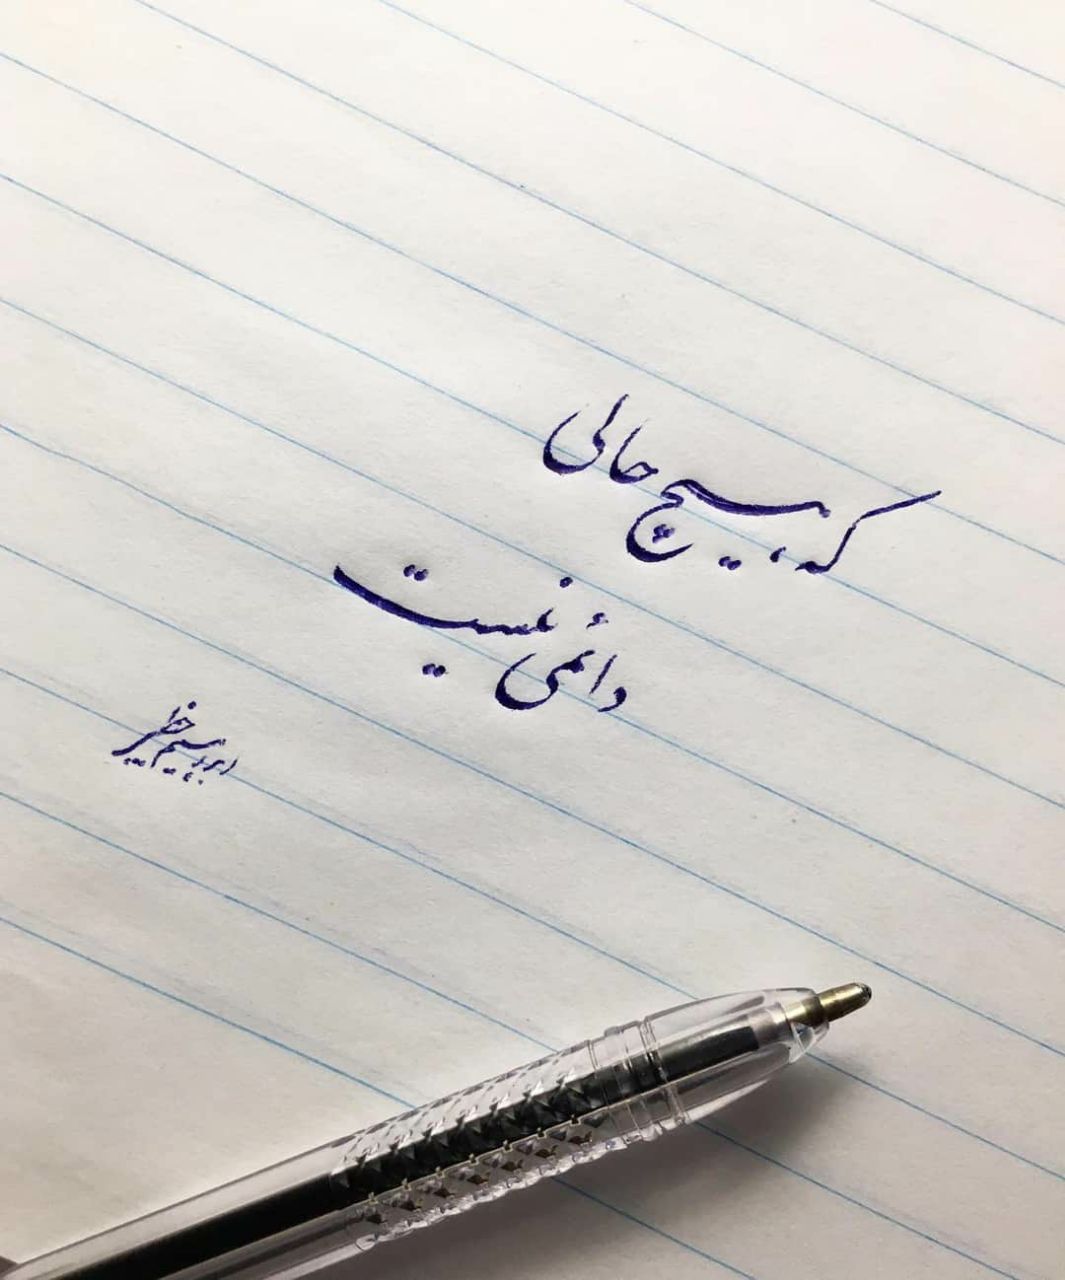 که هیچ حالی
دائمی نیست
ابراهیم